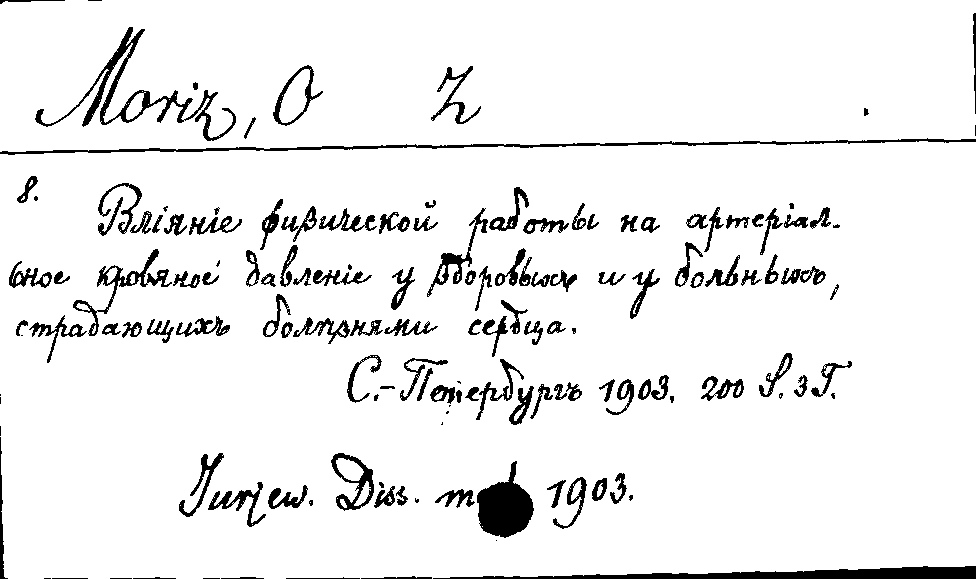 Moriz, O Z
8.
Вліяніе физической работы на артеріал-
ьное кровяное давленіе у здоровыхъ и у больныхъ,
страдающихъ болѣзнями сердца.
С.-Петербургъ 1903. 200 S. 3 T.
Jurjew. Diss. 1903.